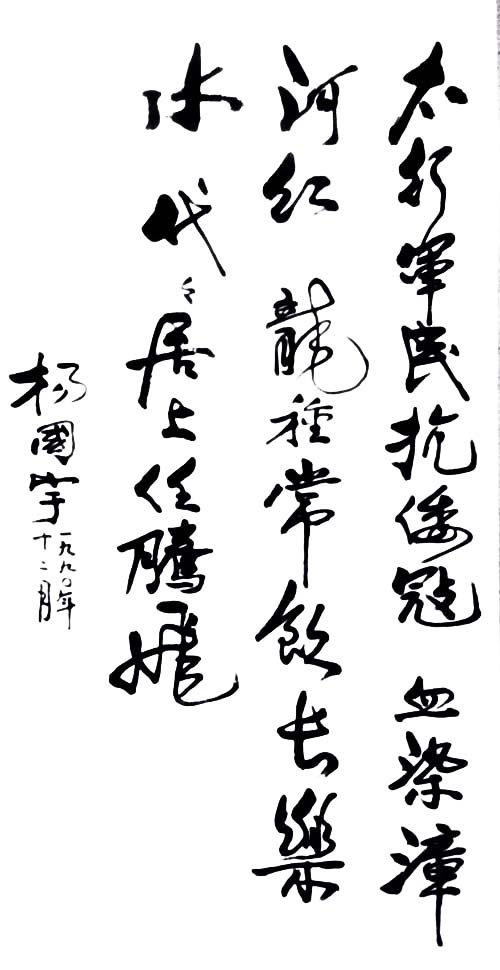 太行軍民抗倭寇 血染漳
河红 龍種常飲长樂
水 代々居上任騰飛
杨國宇
一九九〇年
十二月